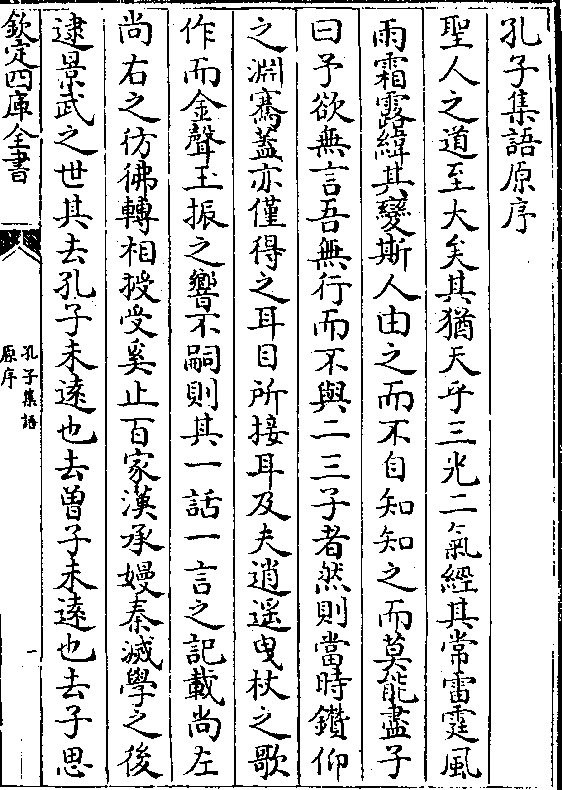 孔子集語原序
聖人之道至大矣其猶天乎三光二氣經其常雷霆風
雨霜露緯其變斯人由之而不自知知之而莫能盡子
曰予欲無言吾無行而不與二三子者然則當時鑽仰
之淵騫蓋亦僅得之耳目所接耳及夫逍遥曳杖之歌
作而金聲玉振之響不嗣則其一話一言之記載尚左
尚右之彷彿轉相授受奚止百家漢承嫚秦滅學之後
逮景武之世其去孔子未遠也去曾子未遠也去子思
欽定四庫全書
孔子集語
原序
一